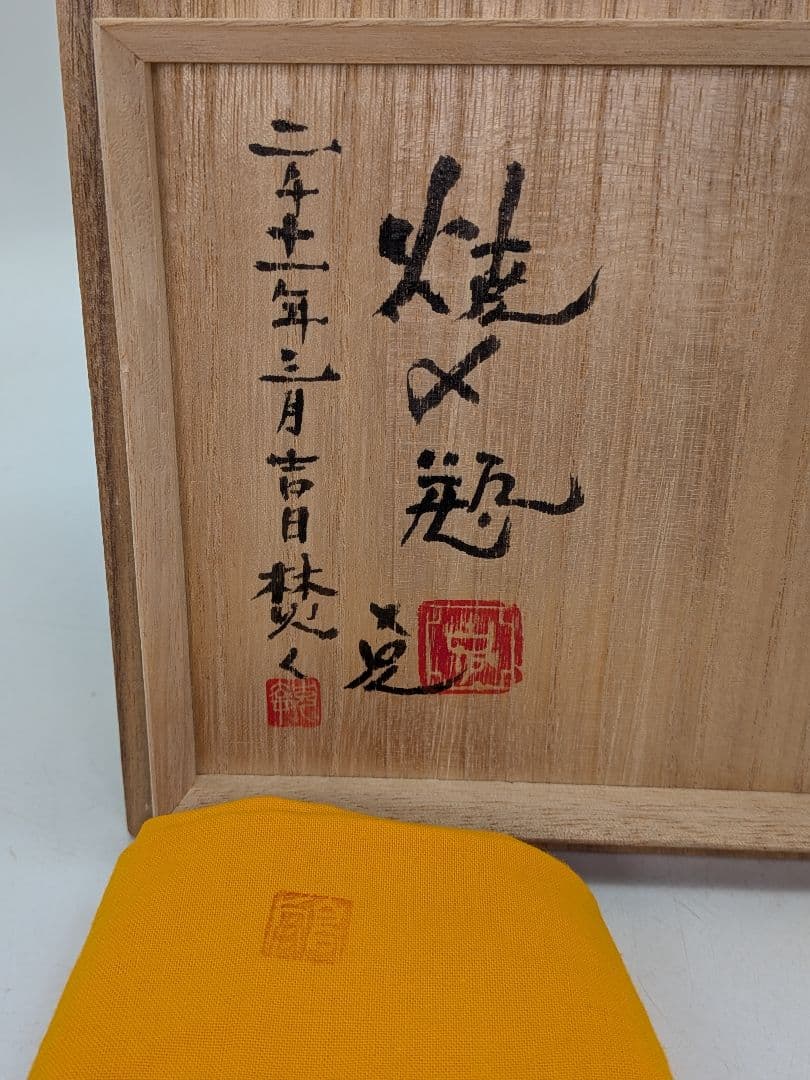 焼〆瓶
克
二千十一年三月吉日焚く